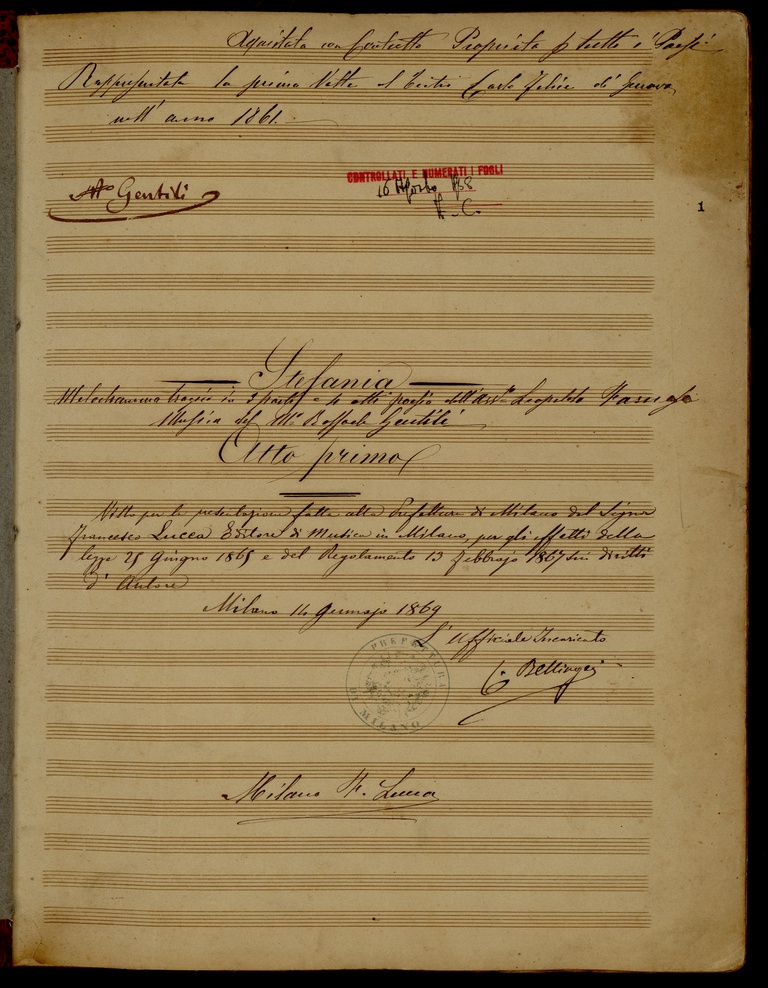 Aquistata con Contratto Proprietà p tutti i Paesi
Rappresentata la prima Volta al Teatro Carlo Felice di Genova
nell' anno 1861.
CONTROLLATI E NUMERATI I FOGLI
16 Agosto
Gentili
1
Stefania
Melodramma tragico in 3 parti e 4 atti poesia dell' Leopoldo Farnese
Musica del Mo Raffaele Gentili
Atto primo
Visto per la presentazione fatta alla Prefettura di Milano dal Signor
Francesco Lucca Editore di Musica in Milano, per gli effetti della
legge 25 giugno 1865 e del Regolamento 13 febbrajo 1867 sui diritti
d' Autore
Milano 14 Gennajo 1869
L' Uffiziale Incaricato
PREFETTURA
DI MILANO
Milano F. Lucca